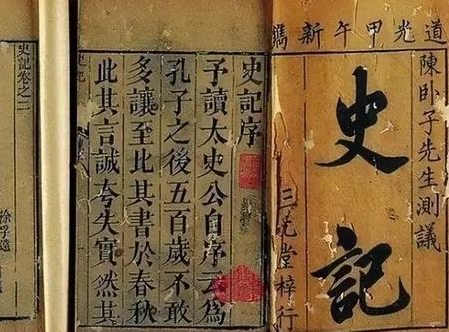 道光甲午新鐫
陳卧子先生測議
史記
三元堂梓行
史記序
予讀太史公自序云爲
孔子之後五百歲不敢
多讓至比其書於春秋
此其言誠夸失實然其
史記卷之
徐孚遠